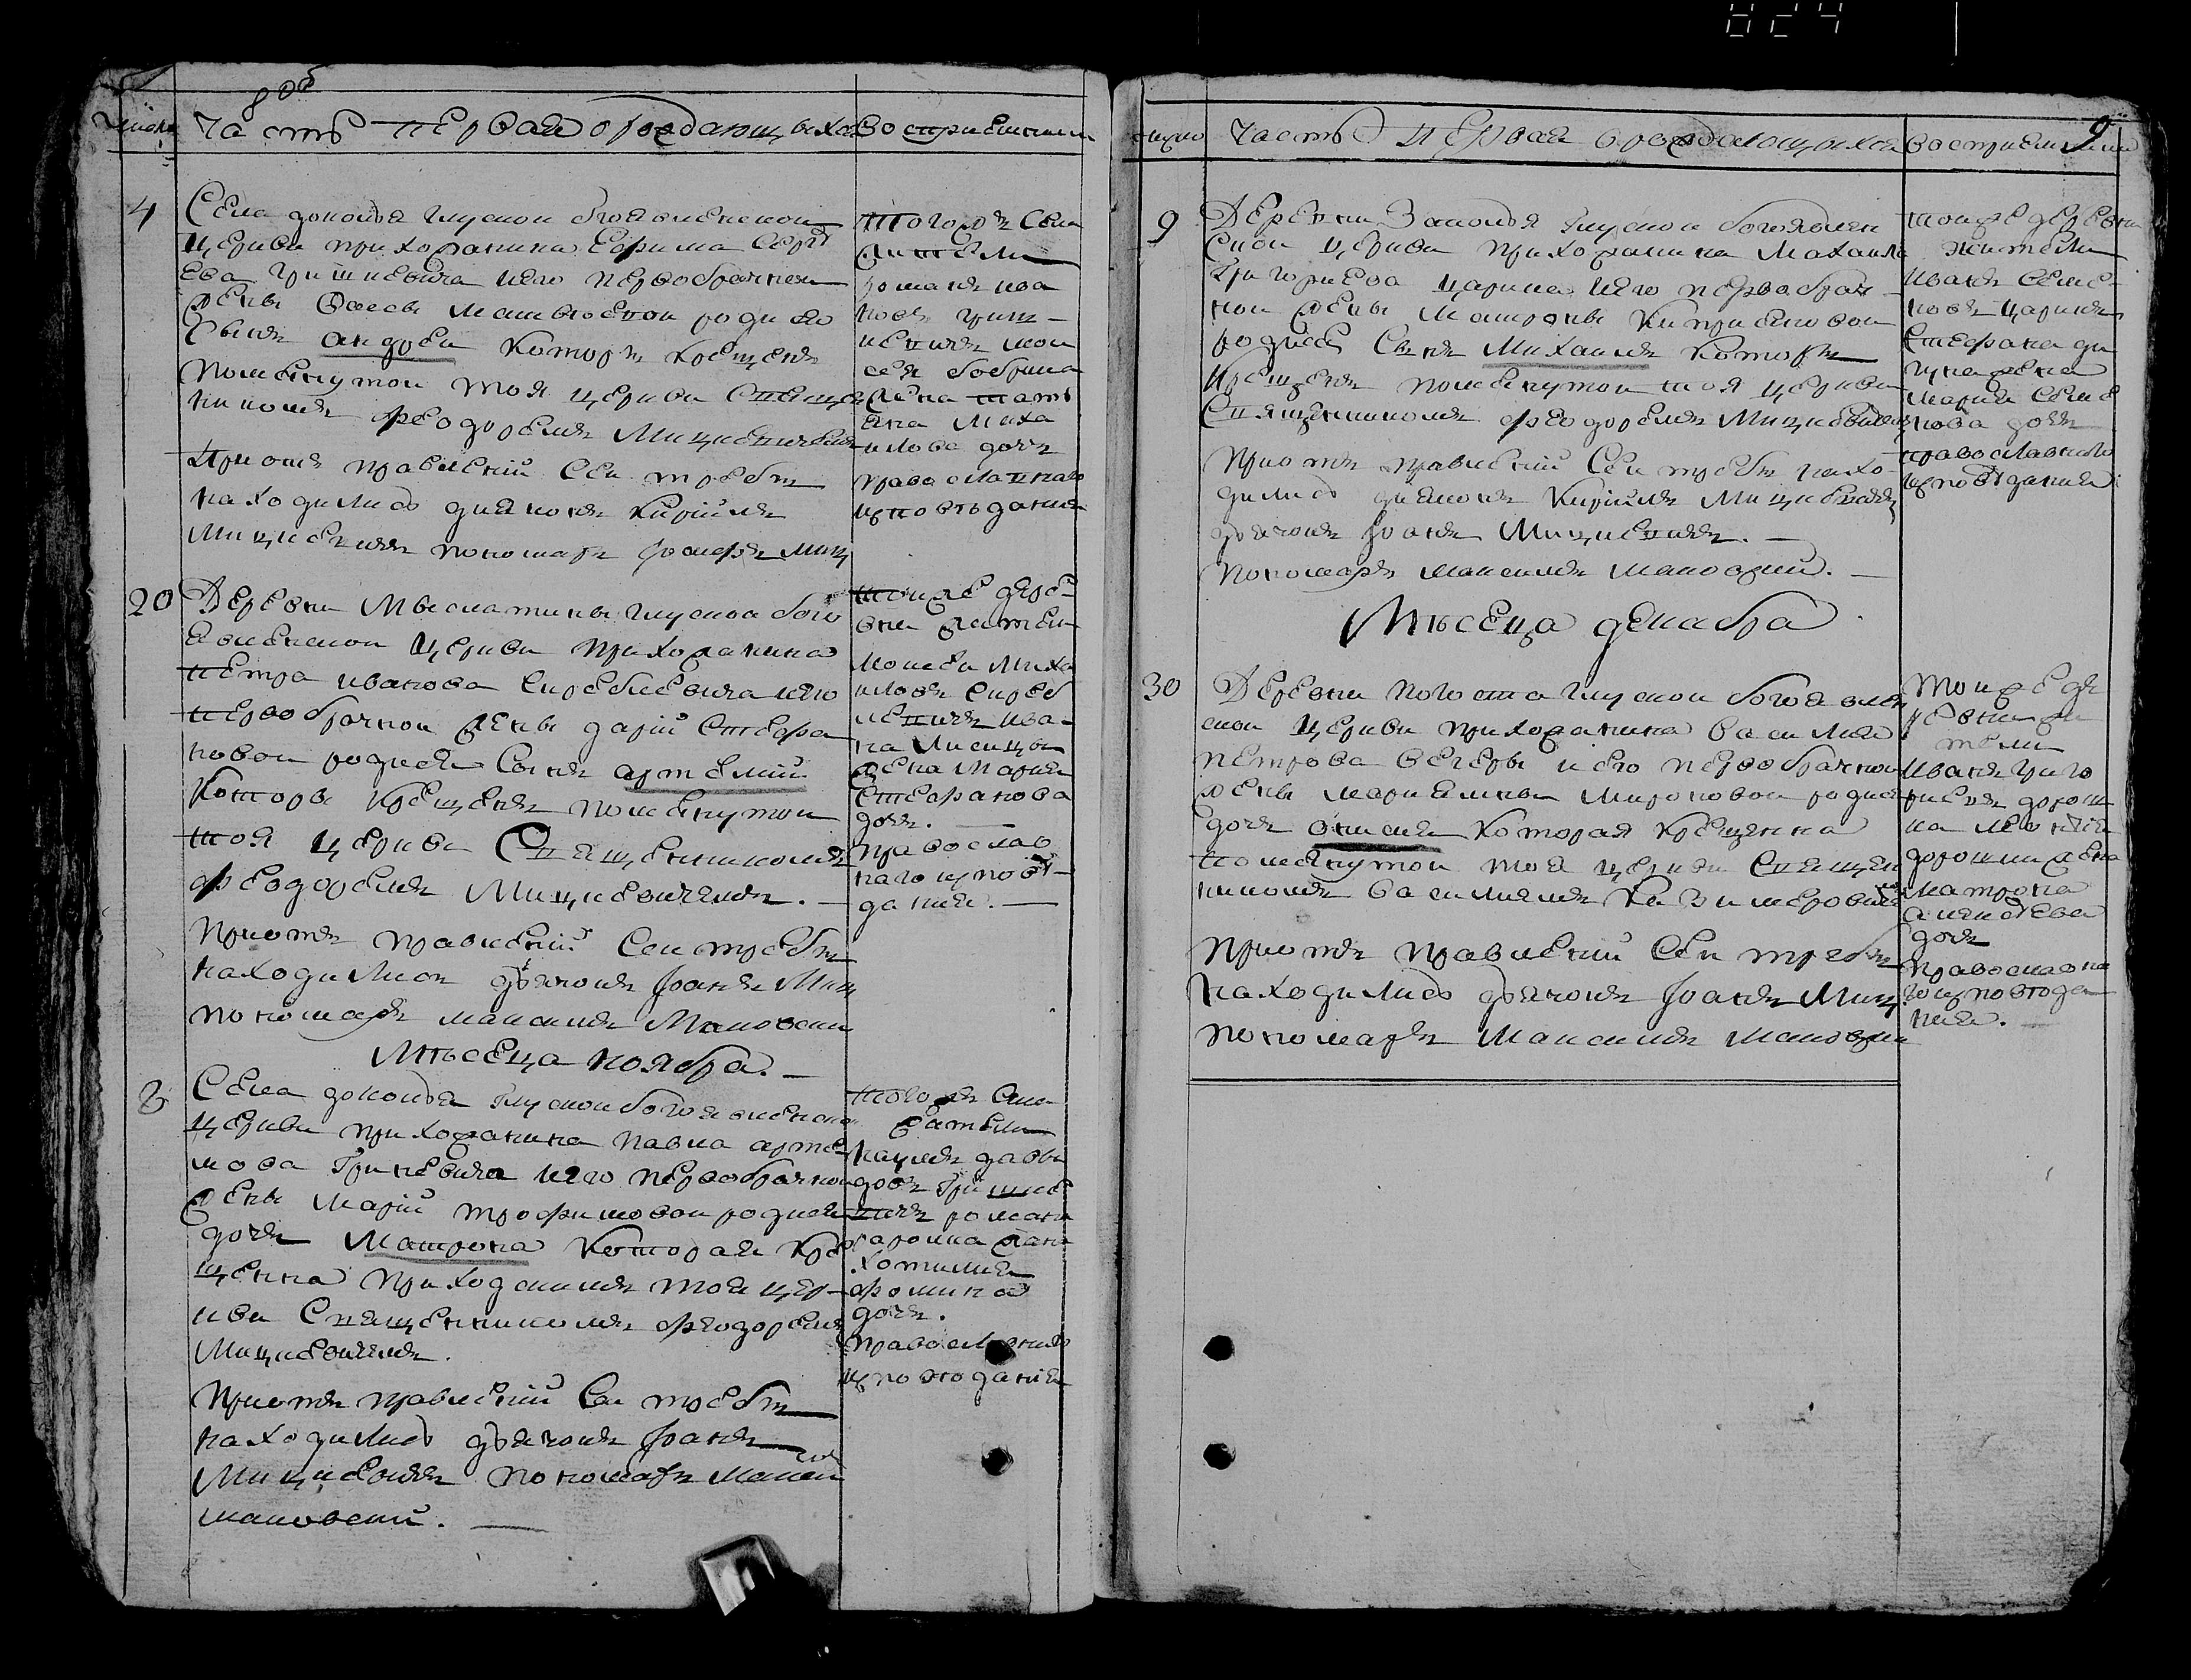 8 об
Число
Часть первая о рождающихся
Восприемники
4
Села доколья глуской богоявленской
церкви прихожанина Ефима Сергѣ
ева Гришкевича и его первобрачной
жены Феси Матвѣевой родился
Сынъ андрей которы крещенъ
помянутой тоя церкви Священ
никомъ феодоромъ Мицкевичемъ
При отправленіи сей требы
находились діаконъ Кирилъ
Мицкевичъ пономарь Іосифъ Миц
Того жъ села
жители
романъ ива
новъ Гриш-
кевичъ мои
сея бобрика
жена тать
яна Миха
илова дочь
православнаго
исповѣданія
20
Деревни Мыслотины глуской бого
явленской церкви прихожанина
петра иванова его
первобрачной жены даріи Стефа
новой родился Сынъ артемій
которы крещенъ помянутой
тоя церкви Священникомъ
феодоромъ Мицкевичемъ.
При отправленіи сей требы
находились дьячокъ Іоанъ Миц
пономарь максимъ Маковски
тоиже дере-
вни жители
Моисеи Миха
иловъ
ива-
на Лисицы
жена Марія
Стефанова
дочь.
православ
наго исповѣ-
данія.
Мѣсеца ноября.
8
Села доколья глуской богоявленско
церкви прихожанина павла арте
мова Гриневича и его первобрачной
жены Маріи трофимовой родилась
дочь Матрона которая кре
щенна приходскимъ тоя цер-
кви Священникомъ феодоромъ
Мицкевичемъ.
При отправленіи сей требы
находились дьячокъ Іоанъ
Мицкевичъ пономарь Максимъ
маковскій.
того жъ села
жители
давы
довъ Гришке
вичъ романа
жена
фомина
дочь.
православнаго
исповѣданія
9
Число
Часть первая о рождающихся
Восприемники
9
Деревни Заполья глуской богоявлен
ской церкви прихожанина Михаила
Григорьева царика и его первобрач-
ной жены Матроны Киприяновой
родился Сынъ Михаилъ которы
крещенъ помянутой тоя церкви
Священникомъ феодоромъ Мицкевичем
При отправленіи сей требы нахо-
дились дияконъ Кирилъ Мицкевичъ
дьячокъ Іоанъ Мицкевичъ.
Пономарь максимъ маковский.
тоиже деревни
жители
иванъ Семе-
новъ царикъ
Стефана
жена
Марія Семе
нова дочь
православнаго
исповѣданія
Мѣсеца декабра
30
Деревни погоста глуской богоявлен
ской церкви прихожанина василия
петрова вечеры и его первобрачной
жены мариямны Мироновой родилась
дочь которая крещенна
помянутой тоя церкви Священ
никомъ василиемъ Казимеровичем
При отправленіи сей требы
находились дьячокъ Іоанъ Миц
пономарь Максимъ маковски
Тоиже де
ревни жи
тели
иванъ Григо
жена
матрона
алексѣева
дочь
православна
го исповѣда
нія.